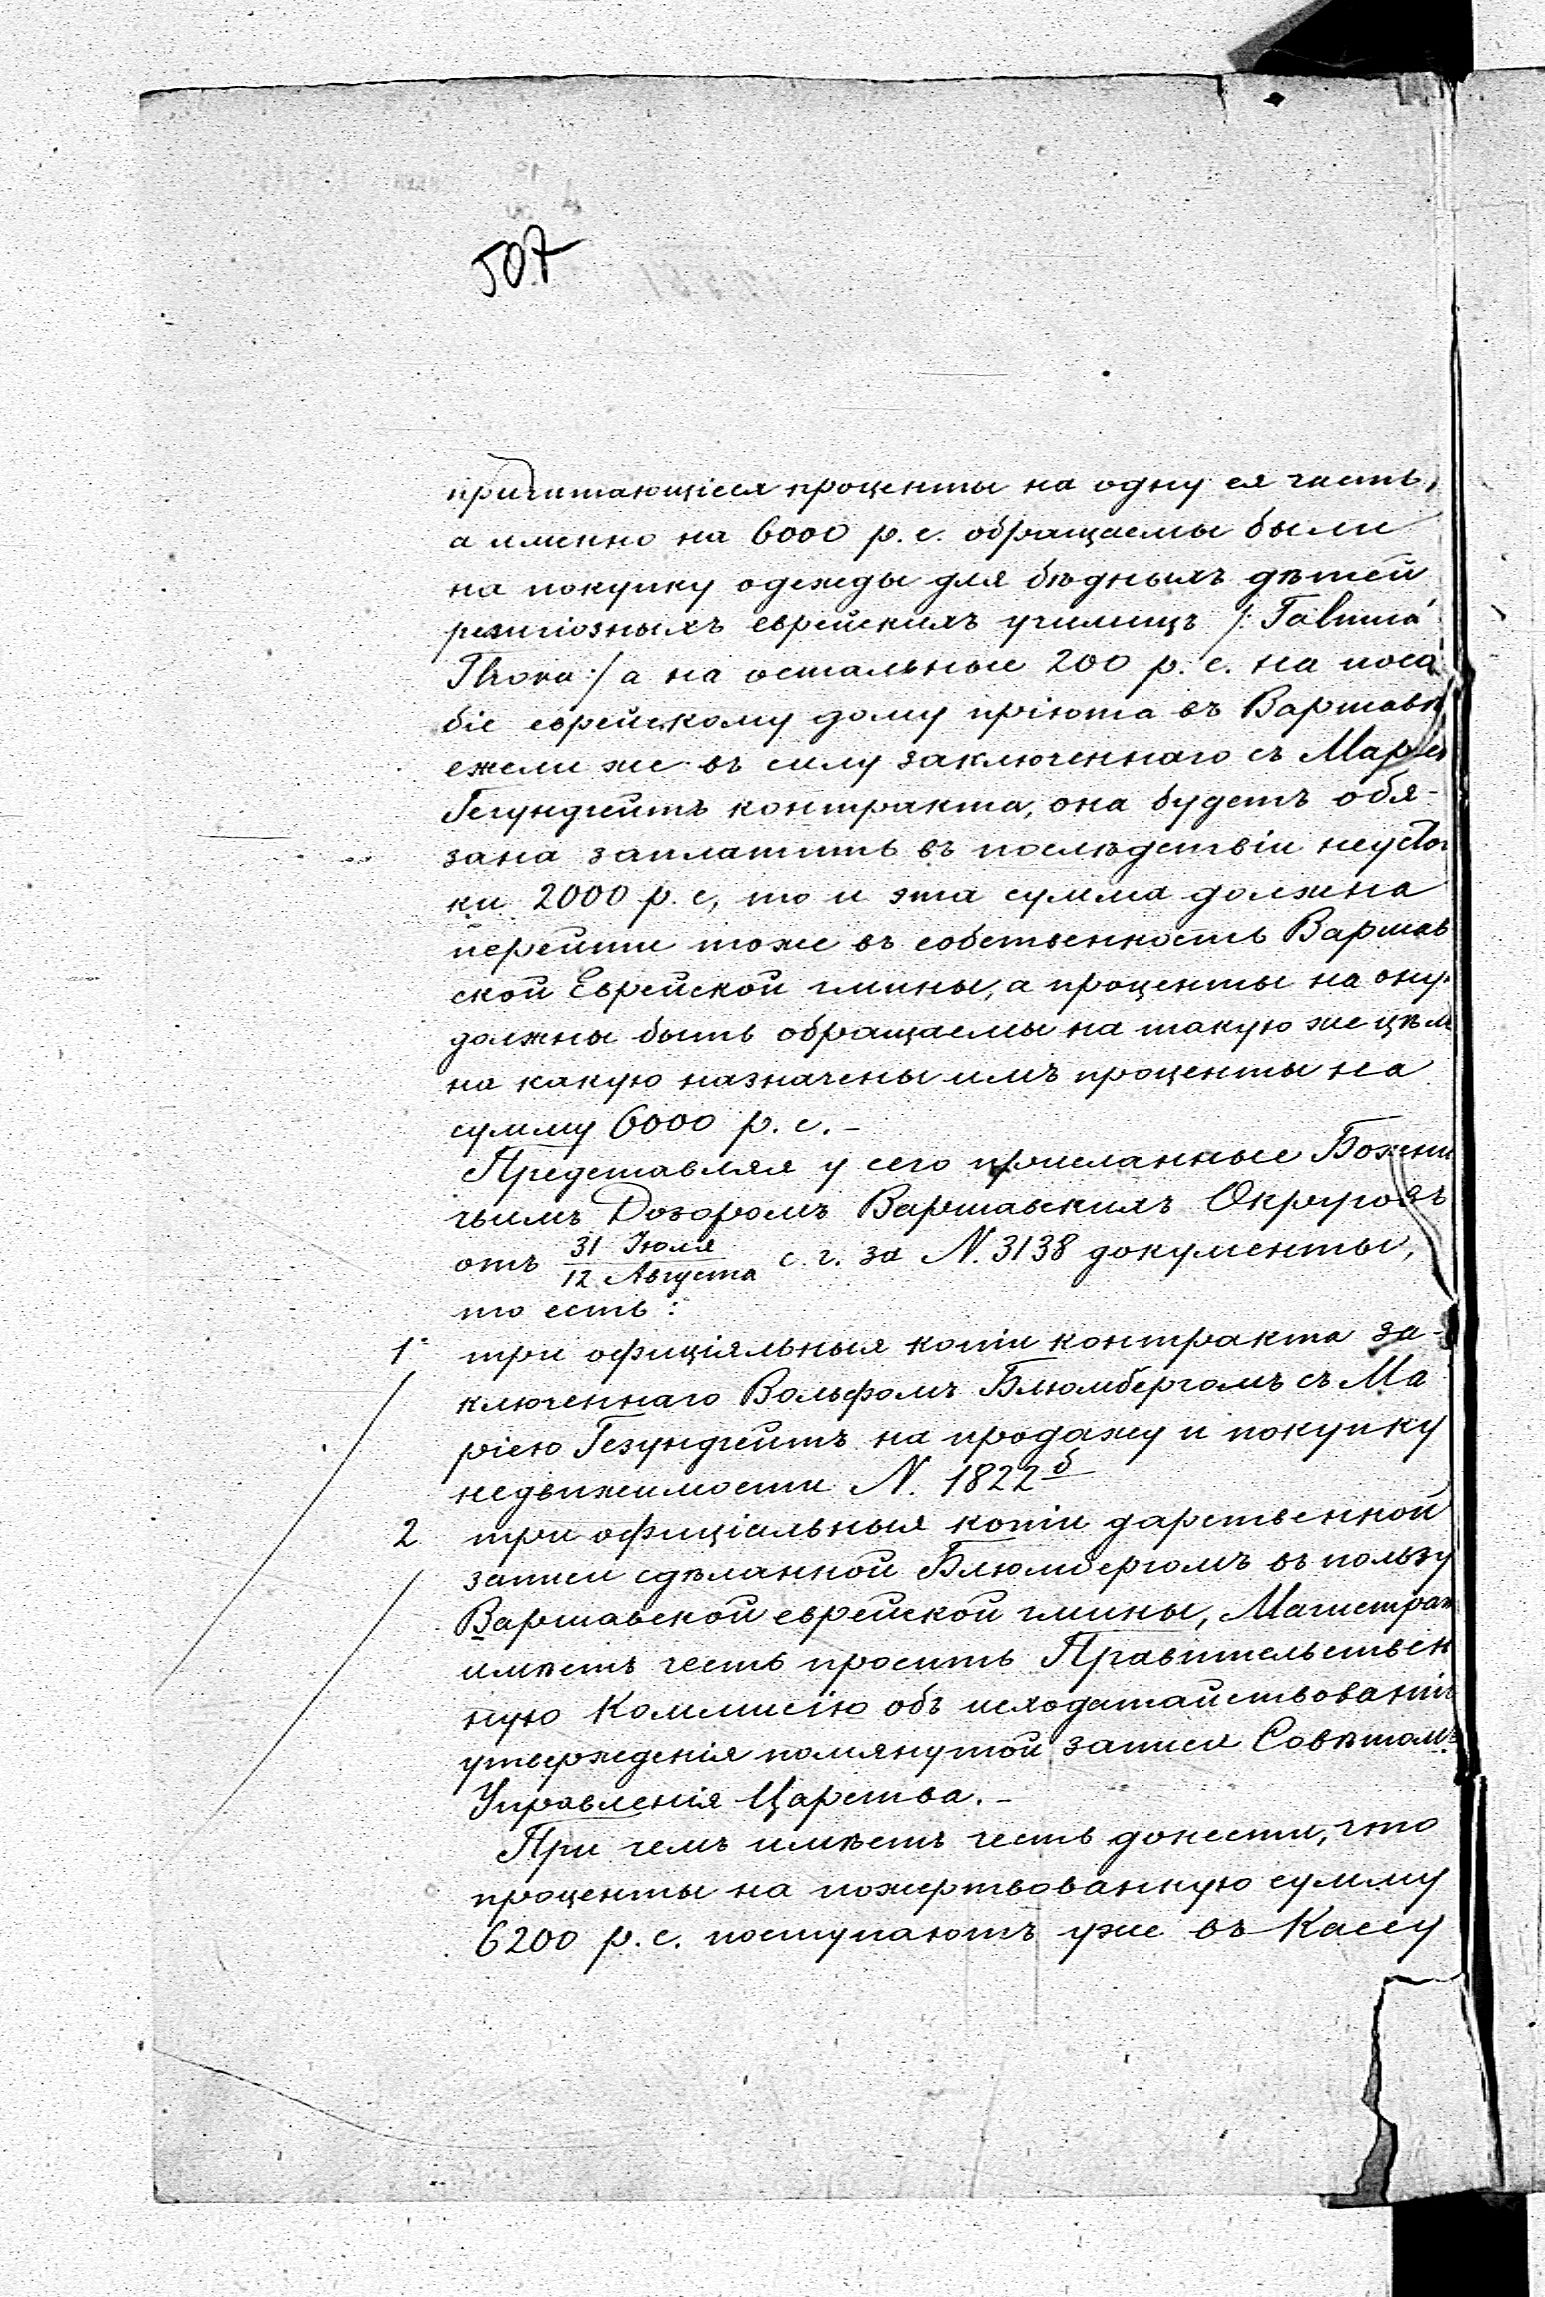 507
причитающіеся проценты на одну ея часть,
а именно на 6000 р. с. обращаемы были
на покупку одежды для бѣдныхъ дѣтей
религіозныхъ еврейскихъ училищъ /: Talmud
Thora :/ а на остальные 200 р. с. на посо
біе еврейскому дому пріюта въ Варшавѣ
ежели же въ силу заключеннаго съ Маріею
Гезундгейтъ контракта, она будетъ обя-
зана заплатить въ послѣдствіи неустой
ки 2000 р. с, то и эта сумма должна
перейти тоже въ собственность Варшав
ской Еврейской гмины, а проценты на ону
должны быть обращаемы на такую же цѣль
на какую назначены имъ проценты на
сумму 6000 р. с. -
Представляя у сего присланные Божни
чьимъ Дозоромъ Варшавскихъ Округовъ
отъ 31 Іюля / 12 Августа с. г. за N. 3138 документы,
то есть:
1 три офиціяльныя копіи контракта за-
ключеннаго Вольфомъ Блюмбергомъ съ Ма
ріею Гезундгейтъ на продажу и покупку
недвижимости N. 1822 б
2 три офиціальныя копіи дарственной
записи сдѣланной Блюмбергомъ въ пользу
Варшавской еврейской гмины, Магистратъ
имѣетъ честь просить Правительствен
ную Коммисію объ исходатайствованіи
утвержденія помянутой записи Совѣтомъ
Управленія Царства. -
При чемъ имѣетъ честь донести, что
проценты на пожертвованную сумму
6200 р. с. поступаютъ уже въ Кассу